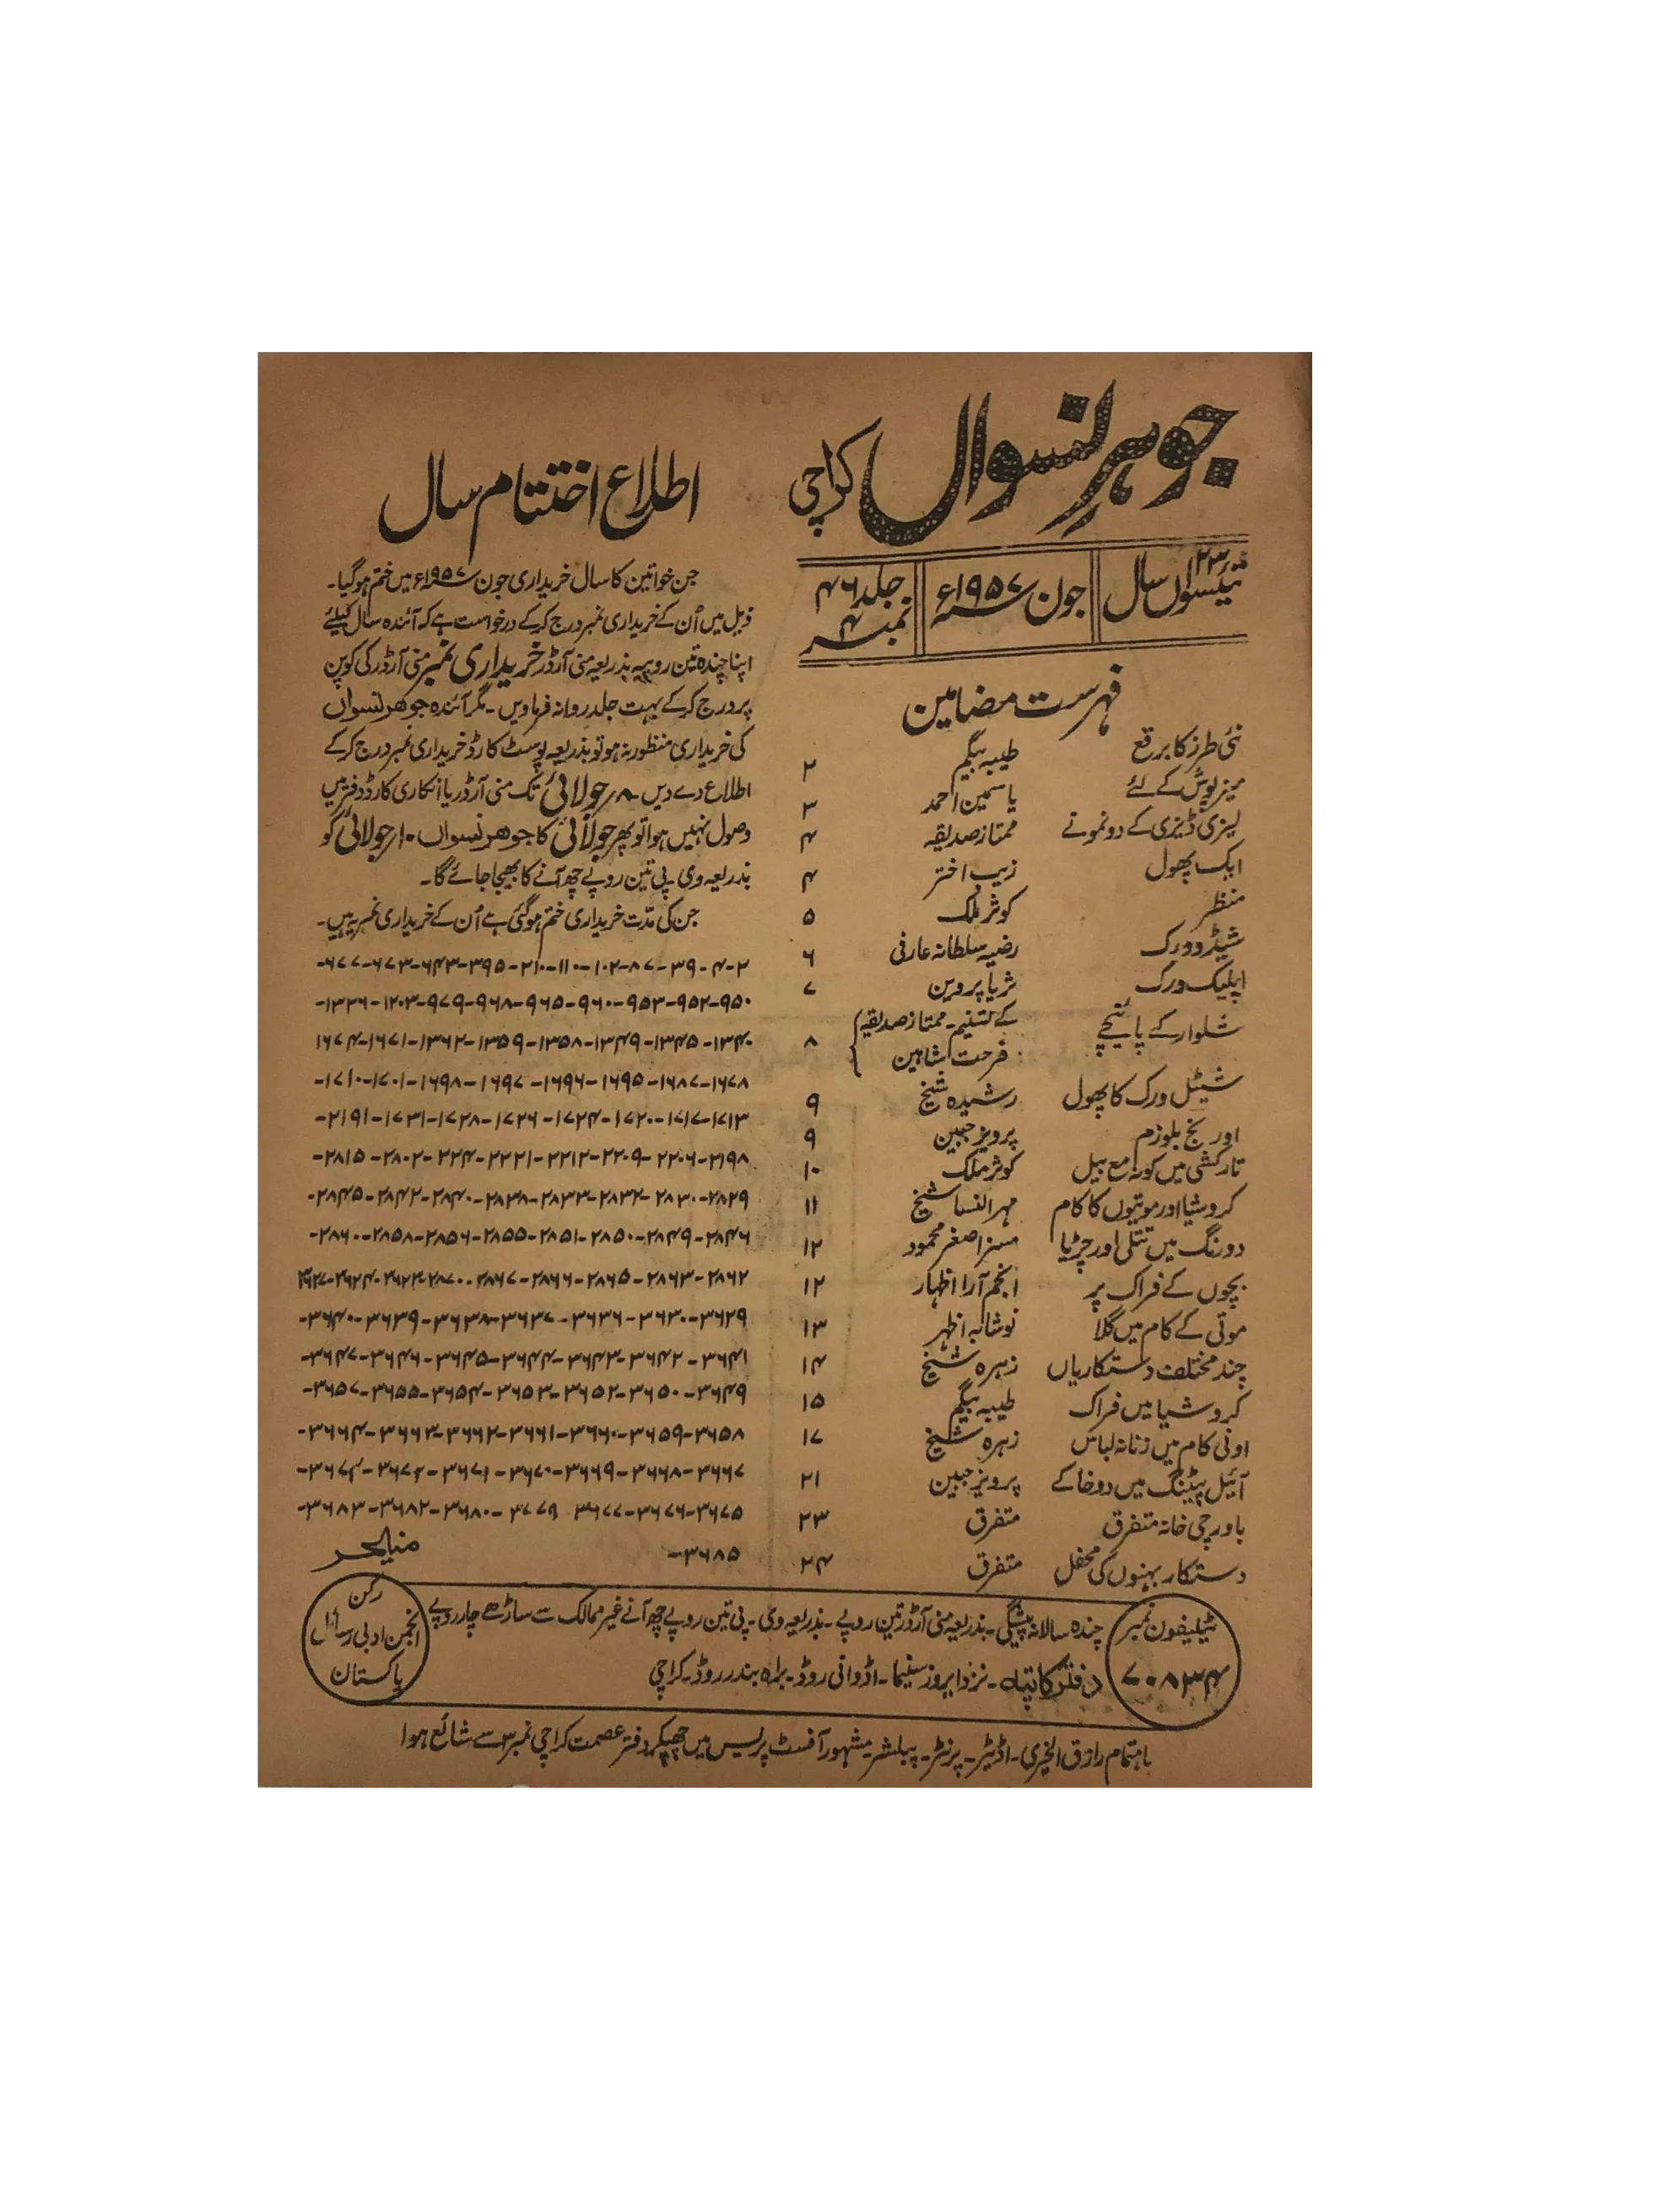 جوہرِ نسواں کراچی
۲۳ تیئسواں سال
جون ۱۹۵۷ء
جلد ۴۶
نمبر ۴
فہرست مضامین
نئی طرز کا برقع طیبہ بیگم ۲
میز پوش کے لئے یاسمین احمد ۳
لیزی ڈیزی کے دو نمونے ممتاز صدیقہ ۴
ایک پھول زیب اختر ۴
منظر کوثر ملک ۵
شیڈو ورک رضیہ سلطانہ عارفی ۶
اپلیک ورک ثریا پروین ۷
شلوار کے پائنچے کے تسنیم۔ ممتاز صدیقہ ۸
فرحت شاہین
شیٹل ورک کا پھول رشیدہ شیخ ۹
اورنج بلوزم پرویز جبین ۹
تارکشی میں کونہ مع بیل کوثر ملک ۱۰
کروشیا اور موتیوں کا کام مہر النسا شیخ ۱۱
دو رنگ میں تتلی اور چڑیا مسز اصغر محمود ۱۲
بچوں کے فراک پر انجم آرا اظہار ۱۲
موتی کے کام میں گلا نوشابہ اظہر ۱۳
چند مختلف دستکاریاں زہرہ شیخ ۱۴
کروشیا میں فراک طیبہ بیگم ۱۵
اونی کام میں زنانہ لباس زہرہ شیخ ۱۷
آئیل پینٹنگ میں دو خاکے پرویز جبین ۲۱
باورچی خانہ متفرق متفرق ۲۳
دستکار بہنوں کی محفل متفرق ۲۴
اطلاع اختتام سال
جن خواتین کا سال خریداری جون ۱۹۵۷ء میں ختم ہوگیا۔
ذیل میں اُن کے خریداری نمبر درج کرکے درخواست ہے کہ آئندہ سال کیلئے
اپنا چندہ تین روپیہ بذریعہ منی آرڈر خریداری نمبر منی آرڈر کی کوپن
پر درج کرکے بہت جلد روانہ فرمادیں۔ مگر آئندہ جوھر نسواں
کی خریداری منظور نہ ہو تو بذریعہ پوسٹ کارڈ خریداری نمبر درج کرکے
اطلاع دے دیں ۸ر جولائی تک منی آرڈر یا انکاری کارڈ دفتر میں
وصول نہیں ہوا تو پھر جولائی کا جوھر نسواں ۱۰ر جولائی کو
بذریعہ وی۔پی تین روپے چھ آنے کا بھیجا جائے گا۔
جن کی مدّت خریداری ختم ہوگئی ہے اُن کے خریداری نمبر یہ ہیں۔
۲-۴-۳۹-۸۷-۱۰۲-۱۱۰-۲۱۰-۳۹۵-۶۴۳-۶۷۳-۶۷۷-
۹۵۰-۹۵۲-۹۵۳-۹۶۰-۹۶۵-۹۶۸-۹۷۹-۱۲۰۳-۱۳۲۶-
۱۳۴۰-۱۳۴۵-۱۳۴۹-۱۳۵۸-۱۳۵۹-۱۳۶۲-۱۶۷۱-۱۶۷۴
۱۶۷۸-۱۶۸۷-۱۶۹۵-۱۶۹۶-۱۶۹۷-۱۶۹۸-۱۷۰۱-۱۷۱۰-
۱۷۱۳-۱۷۱۷-۱۷۲۰-۱۷۲۴-۱۷۲۶-۱۷۲۸-۱۷۳۱-۲۱۹۱-
۲۱۹۸-۲۲۰۶-۲۲۰۹-۲۲۱۲-۲۲۲۱-۲۲۴-۲۸۰۲-۲۸۱۵-
۲۸۲۹-۲۸۳۰-۲۸۳۲-۲۸۳۳-۲۸۳۸-۲۸۴۰-۲۸۴۲-۲۸۴۵-
۲۸۴۶-۲۸۴۹-۲۸۵۰-۲۸۵۱-۲۸۵۵-۲۸۵۶-۲۸۵۸-۲۸۶۰-
۲۸۶۲-۲۸۶۳-۲۸۶۵-۲۸۶۶-۲۸۶۷-۲۸۷۰-۳۶۲۳-۳۶۲۴-۳۶۲۷
۳۶۲۹-۳۶۳۰-۳۶۳۶-۳۶۳۷-۳۶۳۸-۳۶۳۹-۳۶۴۰-
۳۶۴۱-۳۶۴۲-۳۶۴۳-۳۶۴۴-۳۶۴۵-۳۶۴۶-۳۶۴۷-
۳۶۴۹-۳۶۵۰-۳۶۵۲-۳۶۵۳-۳۶۵۴-۳۶۵۵-۳۶۵۷-
۳۶۵۸-۳۶۵۹-۳۶۶۰-۳۶۶۱-۳۶۶۲-۳۶۶۳-۳۶۶۴-
۳۶۶۷-۳۶۶۸-۳۶۶۹-۳۶۷۰-۳۶۷۱-۳۶۷۲-۳۶۷۴-
۳۶۷۵-۳۶۷۶-۳۶۷۷ ۳۷۷۹-۳۶۸۰-۳۶۸۲-۳۶۸۳-
۳۶۸۵-
منیجر
ٹیلیفون نمبر
۷۰۸۳۴
چندہ سالانہ پیشگی۔ بذریعہ منی آرڈر تین روپے۔ بذریعہ وی۔پی تین روپے چھ آنے غیر ممالک سے ساڑھے چار روپے
دفتر کا پتہ۔ نزد ایروز سنیما۔ اڈوانی روڈ۔ براہ بندر روڈ۔ کراچی
رکن
انجمن ادبی رسائل
پاکستان
باہتمام رازق الخیری۔ اڈیٹر۔ پرنٹر۔ پبلشر۔ مشہور آفسٹ پریس میں چھپکر دفتر عصمت کراچی نمبر ۳ سے شائع ہوا